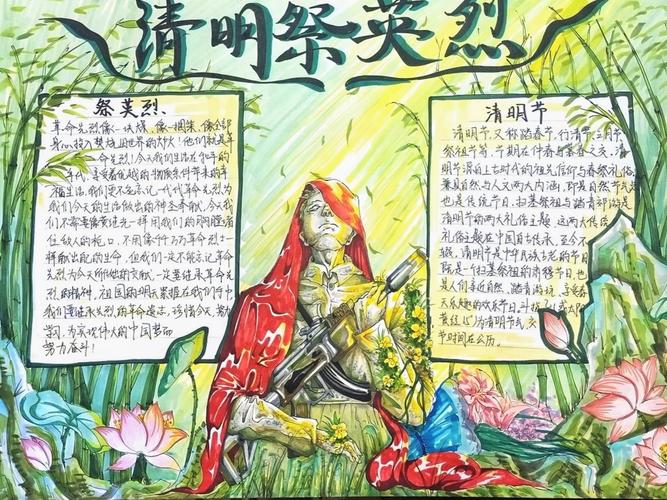 清明祭英烈
祭英烈、
革命先烈像一块煤、像一捆柴、
身心投入焚烧旧世界的大火！他们就是革
命先烈！今天我们生活在和平的
年代，享受着优越的物质条件带来的幸
福生活，我们更不能忘记一代代革命先烈为
我们今天的生活做出的神圣奉献，今天我
们不需要像黄继光一样用我们的胸膛堵
住敌人的枪口，不用像千千万万革命烈士一
样献出起的生命，但我们一次不能忘记革命
先烈为今天所做出的贡献，一定要继承革命先
烈的精神，祖国的明天掌握在我们手中
我们要继承先烈的革命遗志，珍惜今天，努力
学习，为实现伟大的中国梦而
努力奋斗！
清明节
清明节，又称踏春节、行清节、三月节、
祭祖节等，节期在仲春与暮春之交，清
明节源自上古时代的祖先信仰与春祭礼俗，
兼具自然与人文两大内涵，即是自然节气点
也是传统节日，扫墓祭祖与踏青郊游是
清明节的两大礼俗主题，这两大传统
礼俗主题在中国自古传承，至今不
辍，清明节是中华民族古老的节日
既是一个扫墓祭祖的肃穆节日，也
是人们亲近自然，踏青游玩，享受春
天乐趣的欢乐节日，斗指
黄经15°为清明节气，交
节时间在公历。